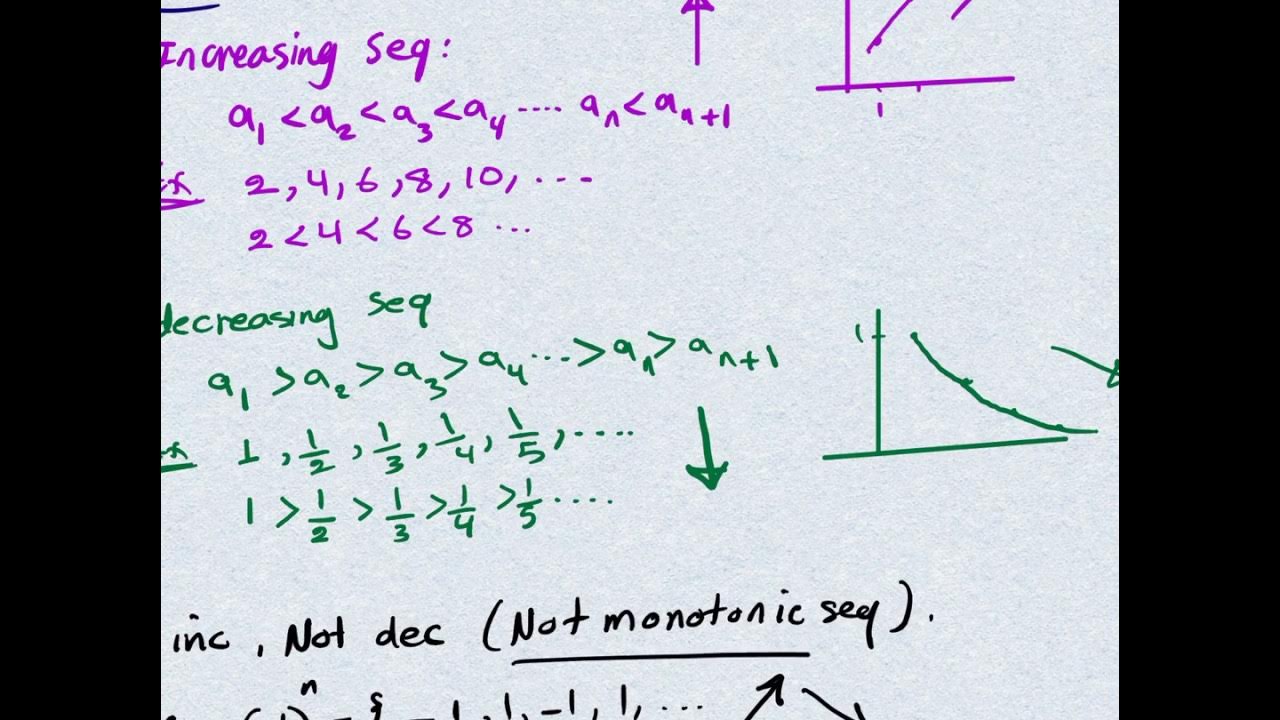 Increasing seq:
a₁ < a₂ < a₃ < a₄ .... aₙ < aₙ₊₁
1
Ex 2, 4, 6, 8, 10, ....
2 < 4 < 6 < 8 ...
decreasing seq
1
a₁ > a₂ > a₃ > a₄ ... > aₙ > aₙ₊₁
Ex 1, 1/2, 1/3, 1/4, 1/5, ....
1 > 1/2 > 1/3 > 1/4 > 1/5 ....
inc, Not dec (Not monotonic seq).
n
-1, 1, -1, 1, ...